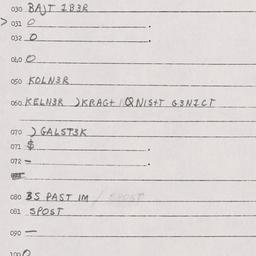 030 BAJT 1B3R
> 031 0 .
032 0 .
060 0
050 KOLN3R
060 KELN3R )KRAGT QNIS+T G3NICT
070 )GALST3K
071 $ .
072 - .
080 3S PAST IM / SPOST
081 SPOST
090 —
100 0